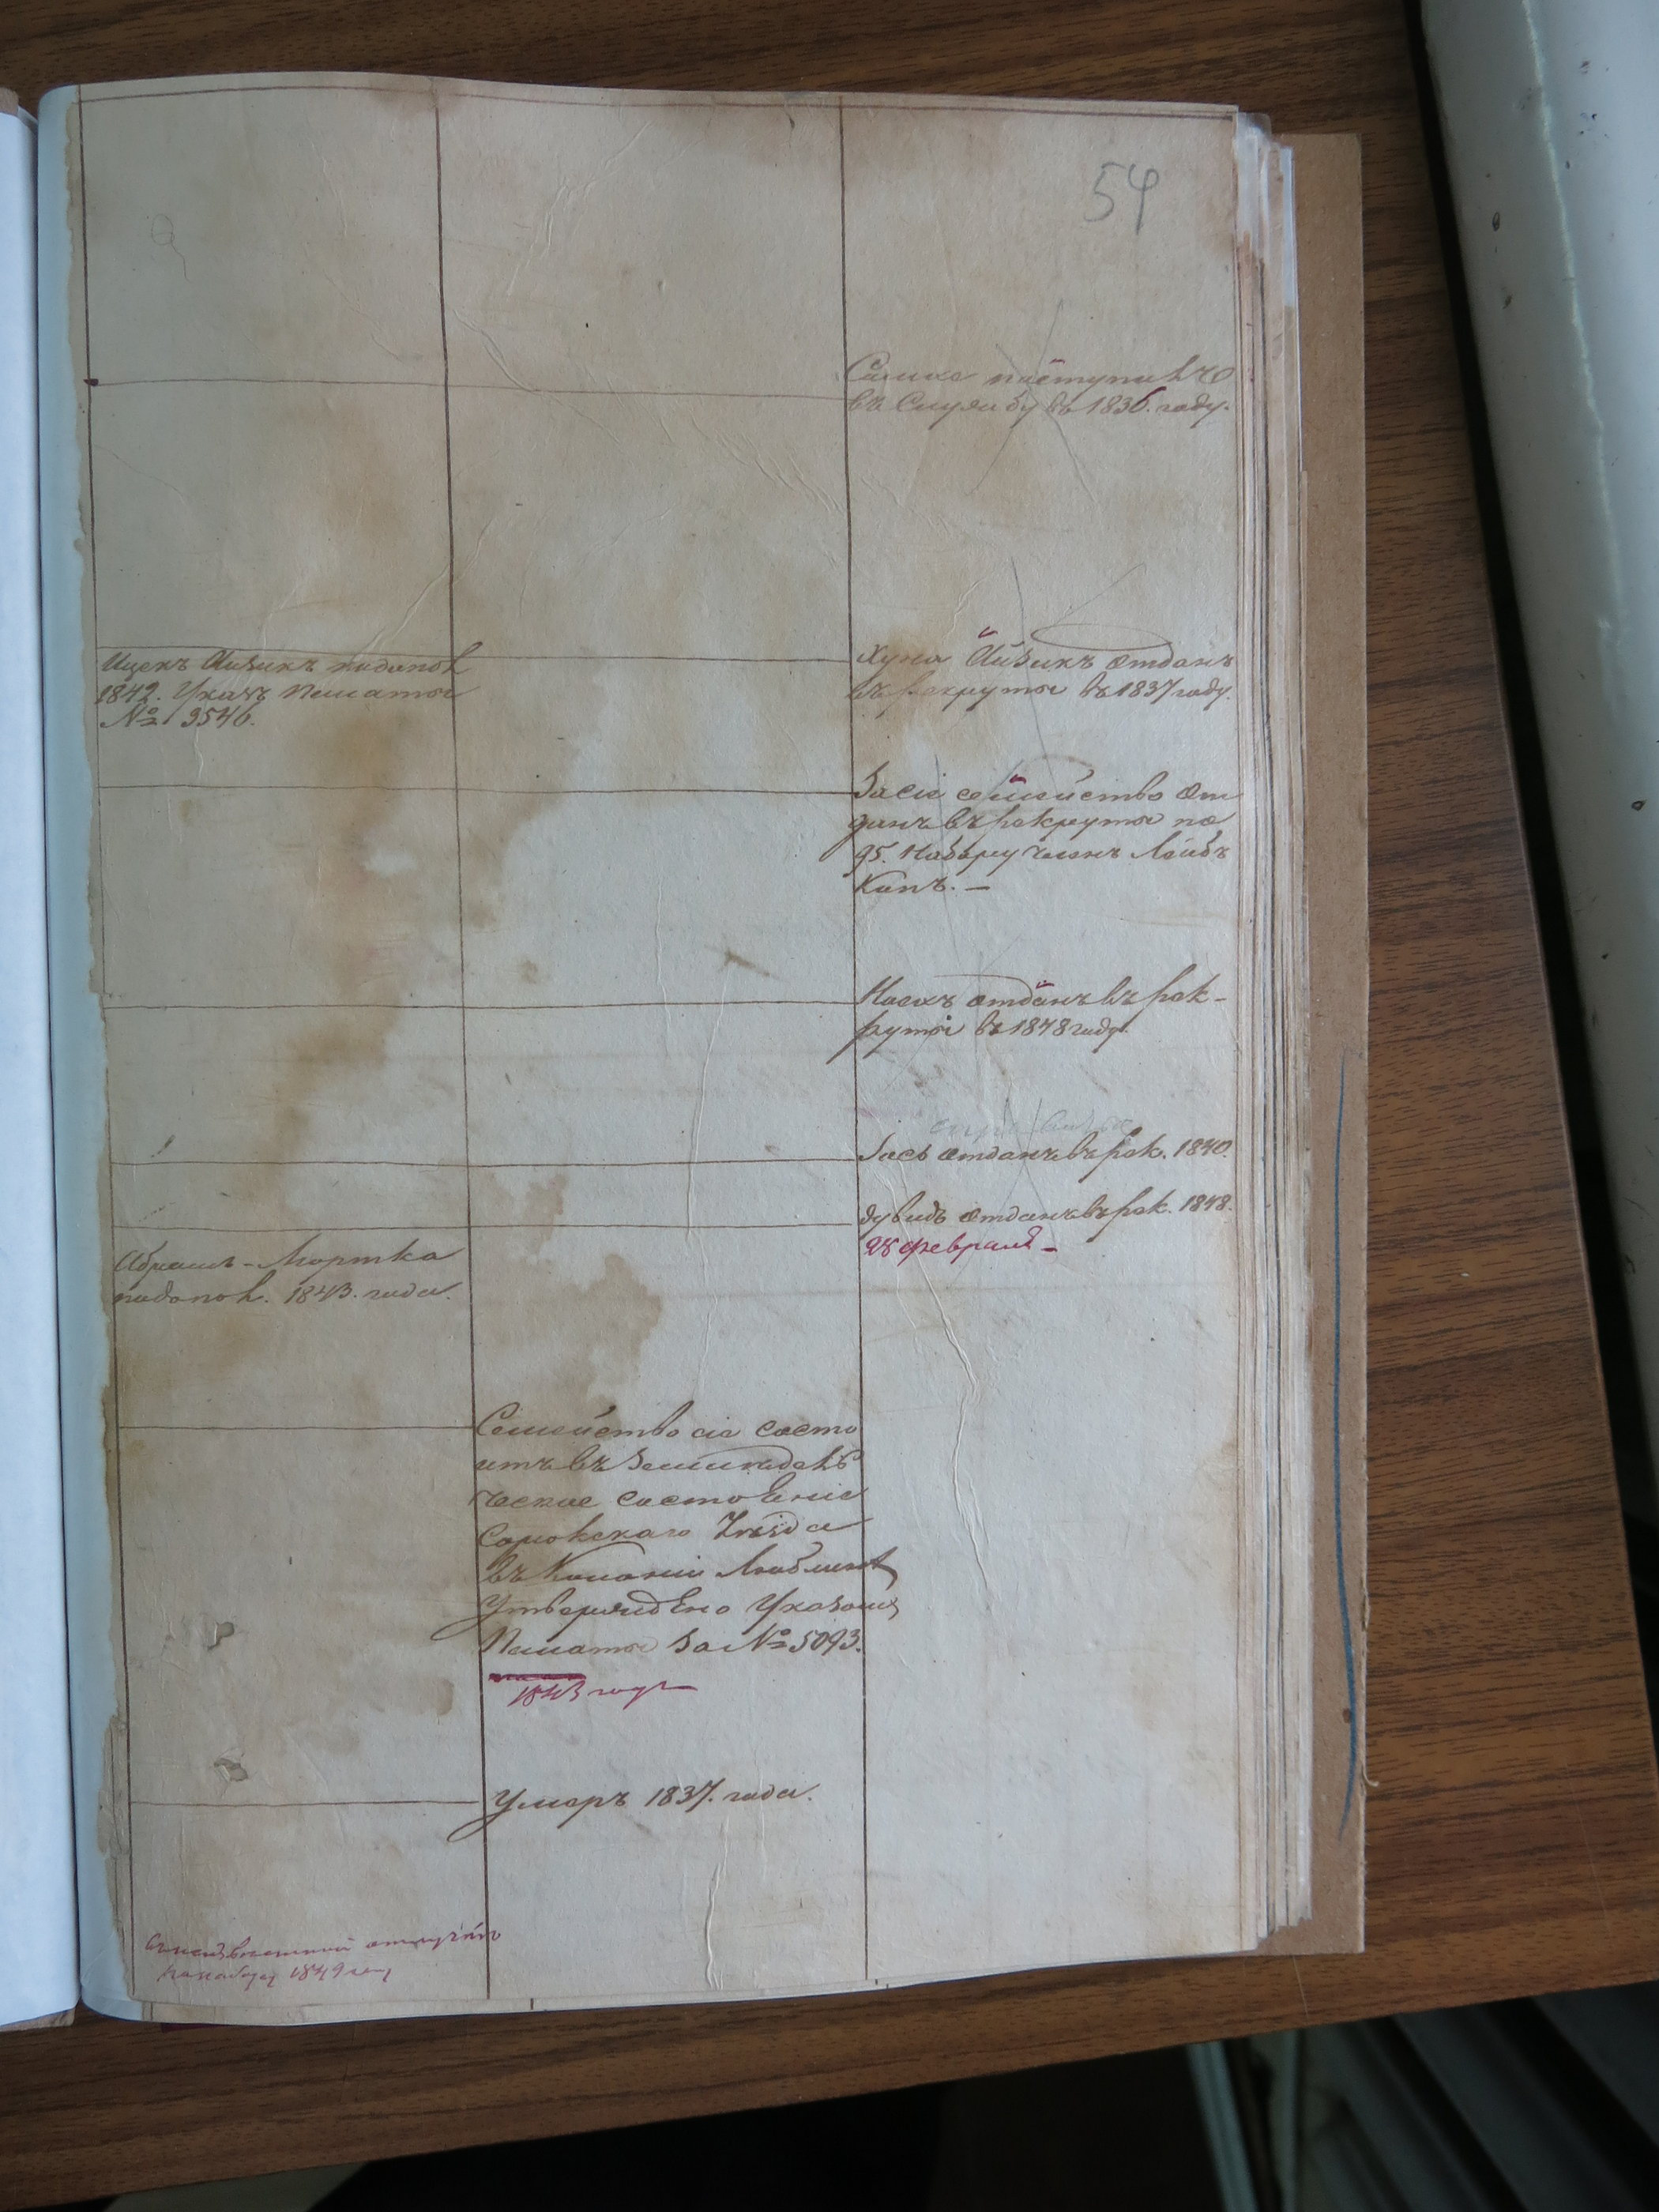 54
въ Службу въ 1836. году.
Ицекъ Айзикъ
1842. Указъ Палаты
№ 9546.
Хуна Айзикъ отданъ
въ рекруты въ 1837 году.
За сіе семейство от
данъ въ рекруты по
95. Набору членъ Лейбъ
Капъ. —
отданъ въ рек-
руты въ 1848 году.
отданъ въ рек. 1840.
Дувидъ отданъ въ рек. 1848.
28 февраля —
Абрамъ-Мортка
1843. года.
Семейство сіе состо
итъ въ земледѣль
ческое состоѣніе
Сорокскаго Уѣзда
въ Колоніи Люблинъ
Утверждено Указомъ
Палаты за № 5093.
1843 году
Умеръ 1837. года.
1849